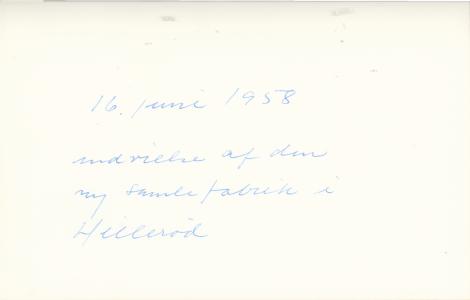 16. juni 1958
indvielse af den
ny samlefabrik i
Hillerød